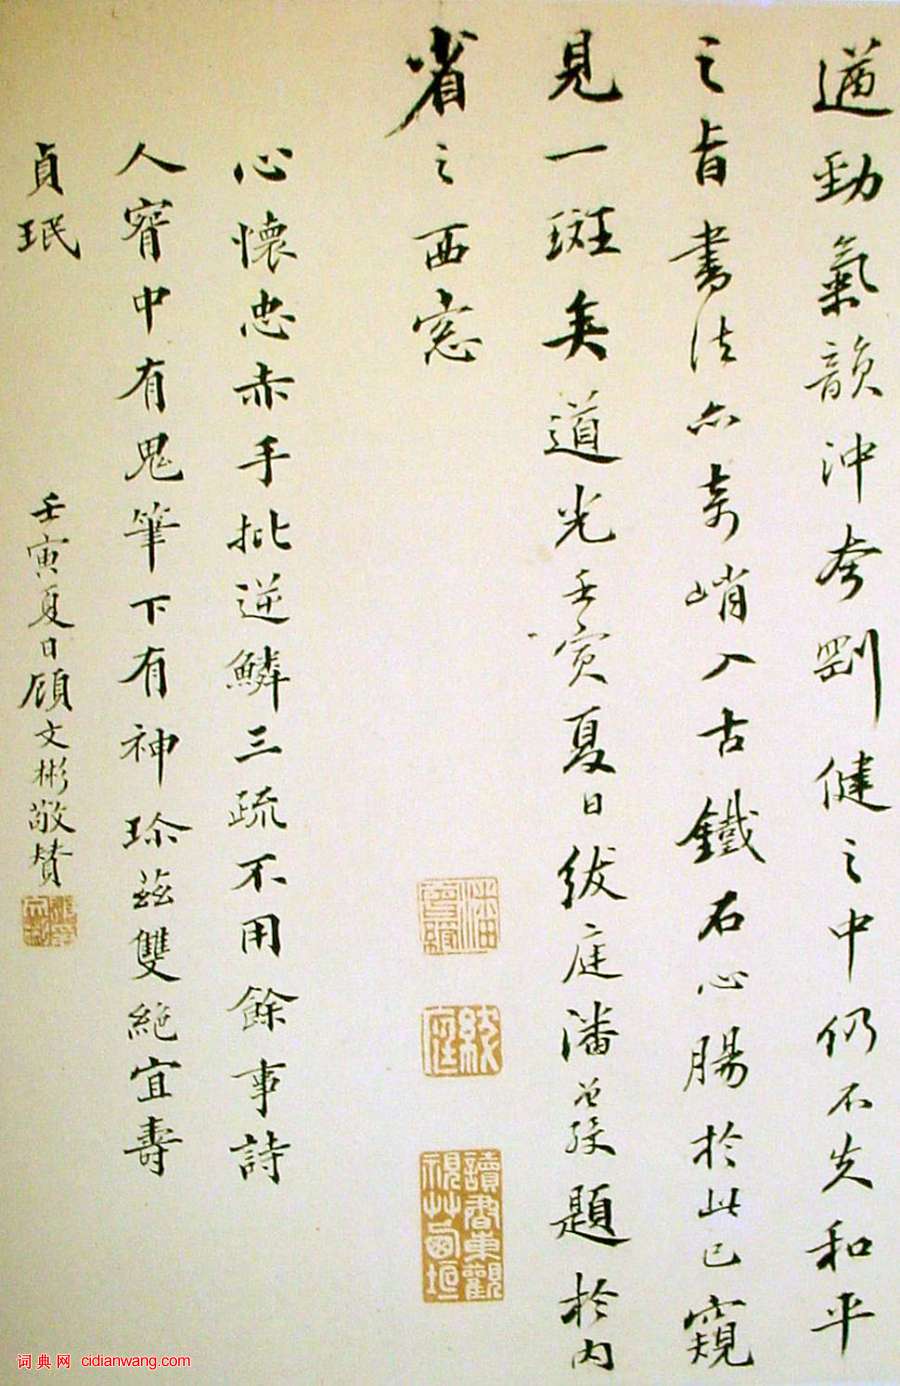 遒勁氣韻沖夸剛健之中仍不失和平
之旨書法亦奇峭入古鐵石心腸於此已窺
見一斑矣道光壬寅夏日紱庭潘曾綬題於內
省之西窓
心懷忠赤手批逆鱗三疏不用餘事詩
人甯中有鬼筆下有神珍茲雙絕宜壽
貞珉
壬寅夏日顧文彬敬贊
潘曾綬
紱庭
讀書東觀視艸西垣
词典网 cidianwang.com